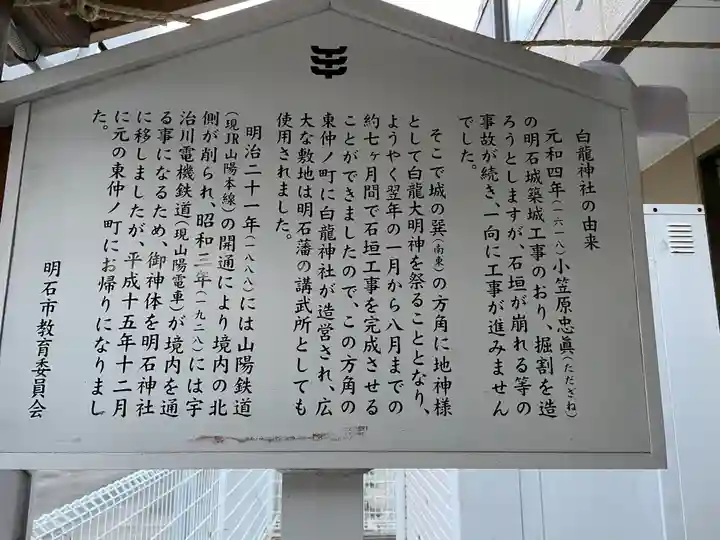 白龍神社の由来
元和四年(一六一八)小笠原忠眞(ただざね)
の明石城築城工事のおり、掘割を造
ろうとしますが、石垣が崩れる等の
事故が続き、一向に工事が進みません
でした。
そこで城の巽(南東)の方角に地神様
として白龍大明神を祭ることとなり、
ようやく翌年の一月から八月までの
約七ヶ月間で石垣工事を完成させる
ことができましたので、この方角の
東仲ノ町に白龍神社が造営され、広
大な敷地は明石藩の講武所としても
使用されました。
明治二十一年(一八八八)には山陽鉄道
(現JR山陽本線)の開通により境内の北
側が削られ、昭和三年(一九二八)には宇
治川電機鉄道(現山陽電車)が境内を通
る事になるため、御神体を明石神社
に移しましたが、平成十五年十二月
に元の東仲ノ町にお帰りになりまし
た。
明石市教育委員会